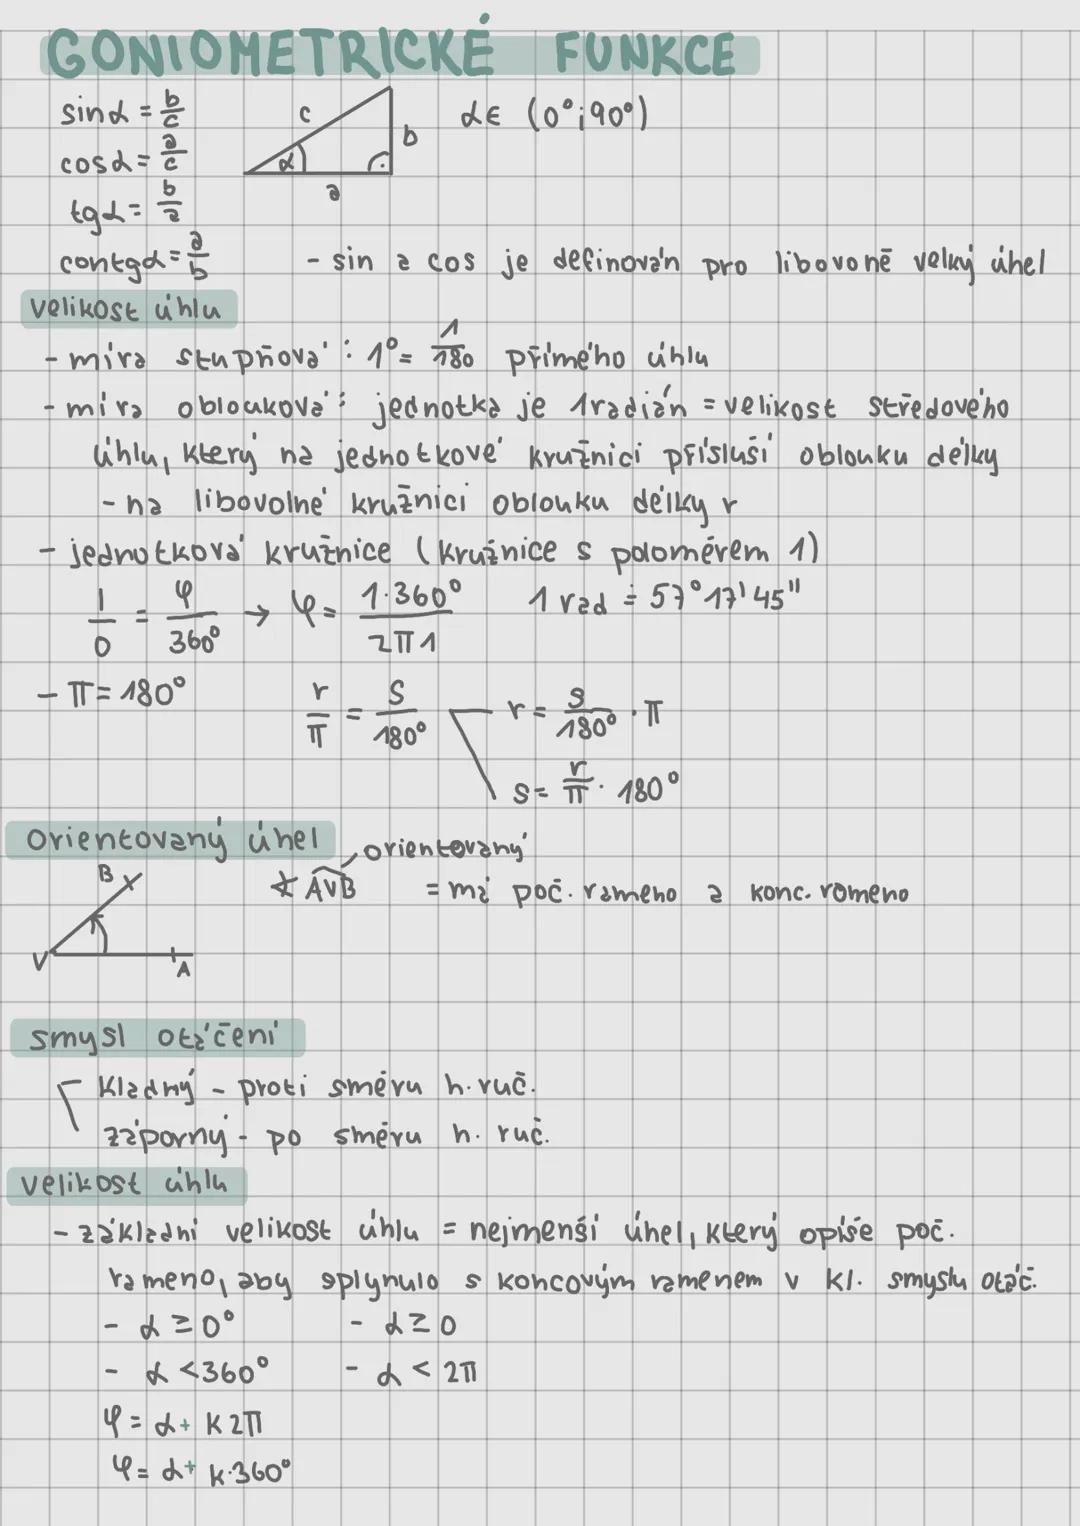 GONIOMETRICKÉ FUNKCE
sin α = b/c
cos α = a/c
tg α = b/a
contg α = a/b
c
b
α
a
α ∈ (0°;90°)
- sin a cos je definován pro libovoně velký úhel
velikost úhlu
- míra stupňová: 1° = 1/180 přímého úhlu
- míra oblouková: jednotka je 1 radián = velikost středového
úhlu, který na jednotkové kružnici přísluší oblouku délky
- na libovolné kružnici oblouku délky r
- jednotková kružnice (kružnice s poloměrem 1)
1/0 = φ/360° → φ = 1·360°/2π1 1 rad ≐ 57°17'45"
- π = 180°
r/π = s/180° r = s/180° · π
s = r/π · 180°
orientovaný úhel
orientovaný
B
∢ AVB = má poč. rameno a konc. romeno
V
A
smysl otáčení
kladný - proti směru h. ruč.
záporný - po směru h. ruč.
velikost úhlu
- základní velikost úhlu = nejmenší úhel, který opíše poč.
rameno, aby splynulo s koncovým ramenem v kl. smyslu otáč.
- α ≥ 0° - α ≥ 0
- α < 360° - α < 2π
φ = α + k2π
φ = α + k·360°